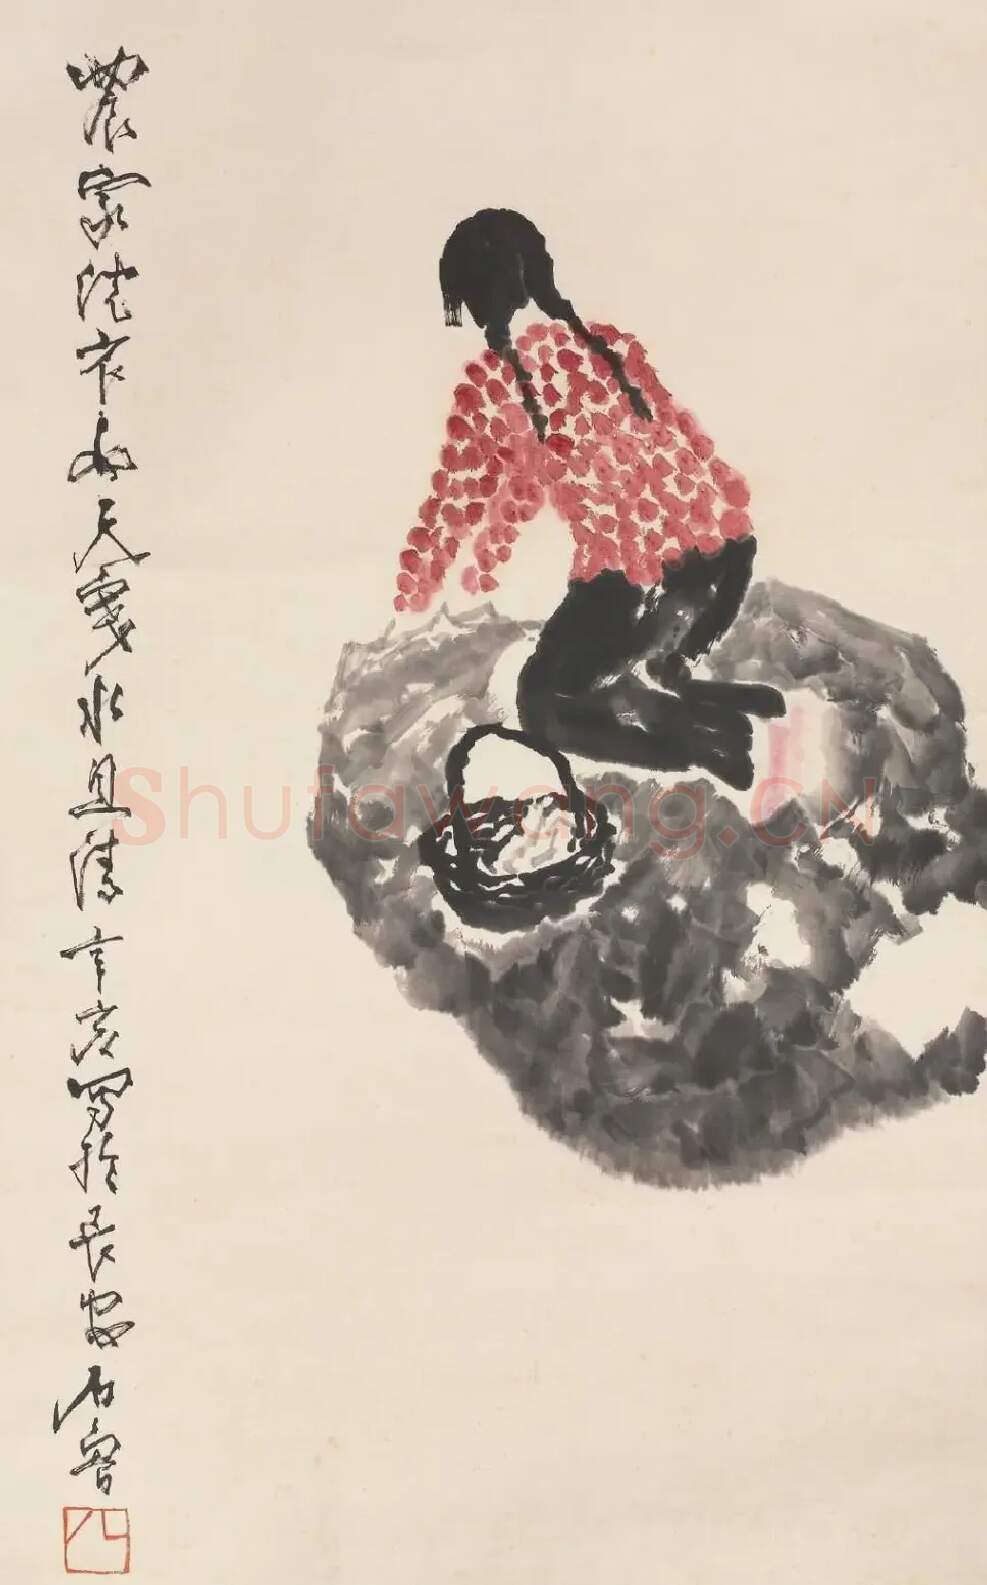 農家洗衣女天寬水且清辛亥寫於長安石魯
Shufawang.CN